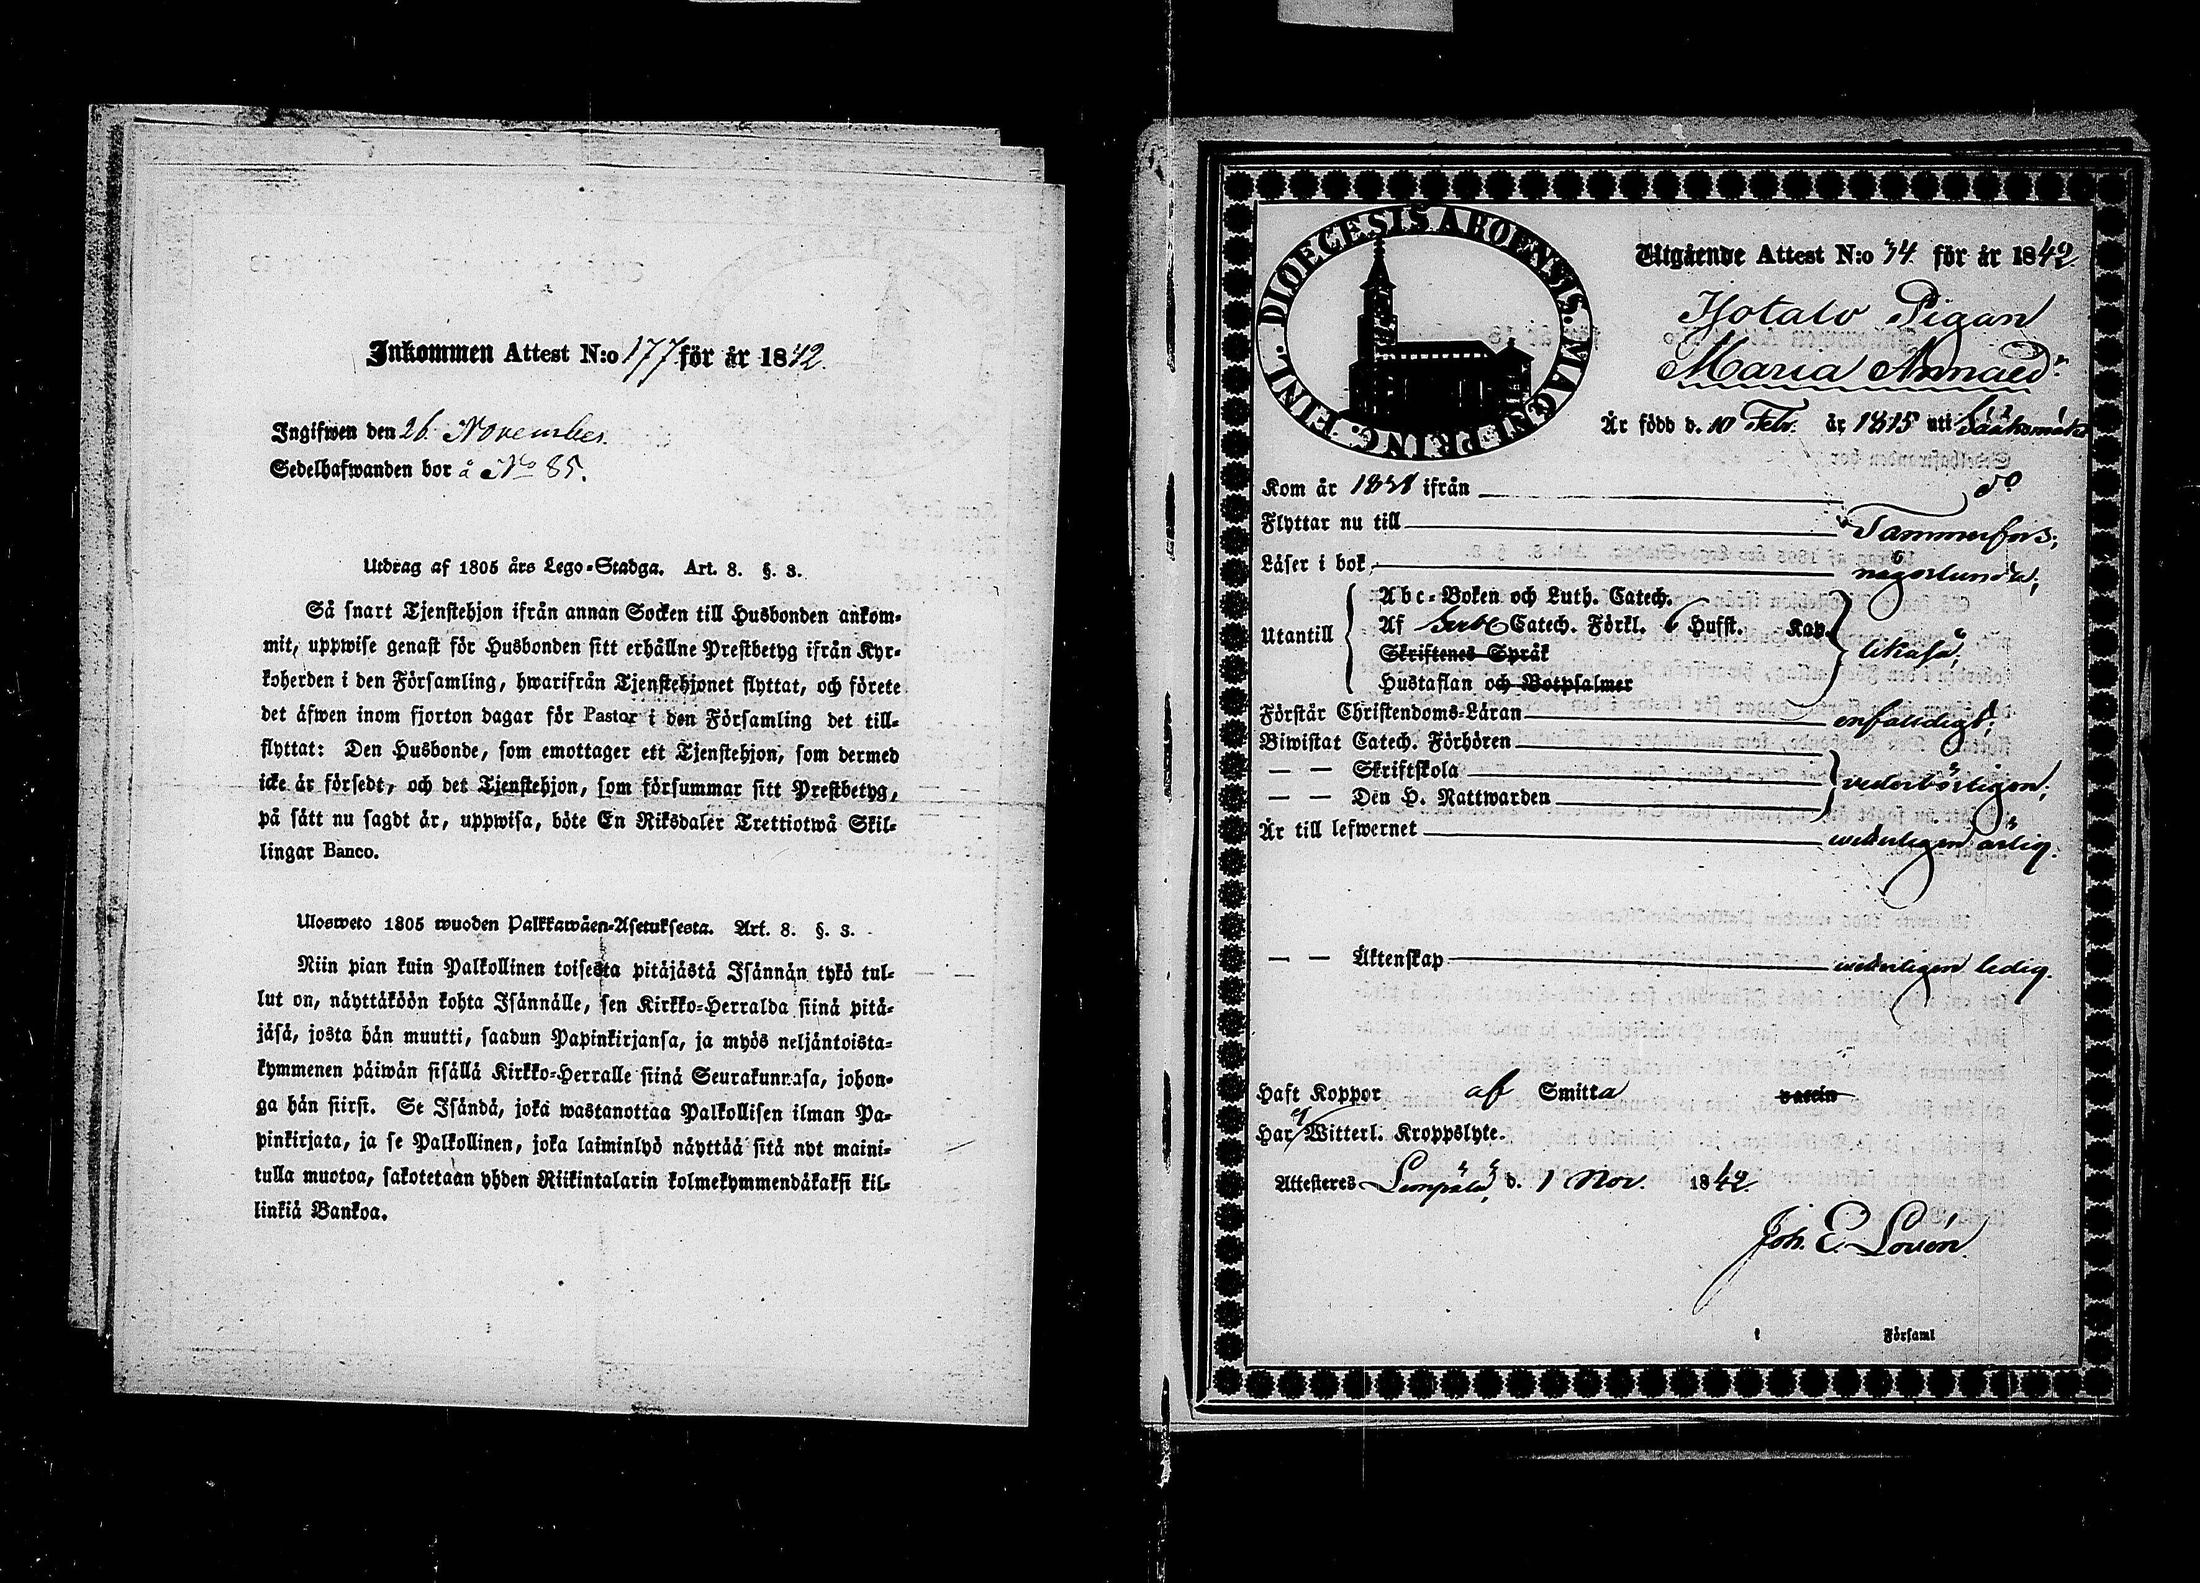 Inkommen Attest N:o 177 för år 1842.
Ingifwen den 26 November.
Sedelhafwanden bor å No 85.
Utdrag af 1805 års Lego-Stadga. Art. 8. §. 3.
Så snart Tjenstehjon ifrån annan Socken till Husbonden ankom-
mit, uppwise genast för Husbonden sitt erhållne Prestbetyg ifrån Kyr-
koherden i den Församling, hwarifrån Tjenstehjonet flyttat, och förete
det äfwen inom fjorton dagar för Pastor i den Församling det till-
flyttat: Den Husbonde, som emottager ett Tjenstehjon, som dermed
icke är försedt, och det Tjenstehjon, som försummar sitt Prestbetyg,
på sätt nu sagdt är, uppwisa, böte En Riksdaler Trettiotwå Skil-
lingar Banco.
Ulosweto 1805 wuoden Palkkawäen-Asetuksesta. Art. 8. §. 3.
Niin pian kuin Palkollinen toisesta pitäjästä Isännän tykö tul-
lut on, näyttäköön kohta Isännälle, sen Kirkko-Herralda siinä pitä-
jäsä, josta hän muutti, saadun Papinkirjansa, ja myös neljäntoista-
kymmenen päiwän sisällä Kirkko-Herralle siinä Seurakunnasa, johon-
ga hän siirsi. Se Isändä, joka wastanottaa Palkollisen ilman Pa-
pinkirjata, ja se Palkollinen, joka laiminlyö näyttää sitä nyt maini-
tulla muotoa, sakotetaan yhden Riikintalarin kolmekymmendäkaksi kil-
linkiä Bankoa.
DIOECESIS ABOENSIS. MAGNI PRINC. FINL.
Utgående Attest N:o 34 för år 1842.
Hotalo Pigan
Maria Annaed:r
Är född d. 10 Febr. år 1815 uti Sääksmäki
Kom år 1838 ifrån do
Flyttar nu till Tammerfors;
Läser i bok någorlunda;
Abc-Boken och Luth. Catech.
Utantill Af Catech. Förkl. 6 Hufst. Kap. likaså;
Skriftenes Språk
Hustaflan och Botpsalmer
Förstår Christendoms-Läran enfaldigt;
Biwistat Catech. Förhören
— — Skriftskola vederbörligen;
— — Den H. Nattwarden
Är till lefwernet wederligen ärlig.
— — Äktenskap wederligen ledig.
Haft Koppor af Smitta vaccin
Har ej Witterl. Kroppslyte.
Attesteres Lempälä, d. 1 Nov. 1842.
Joh. E. Lovén.
Församl